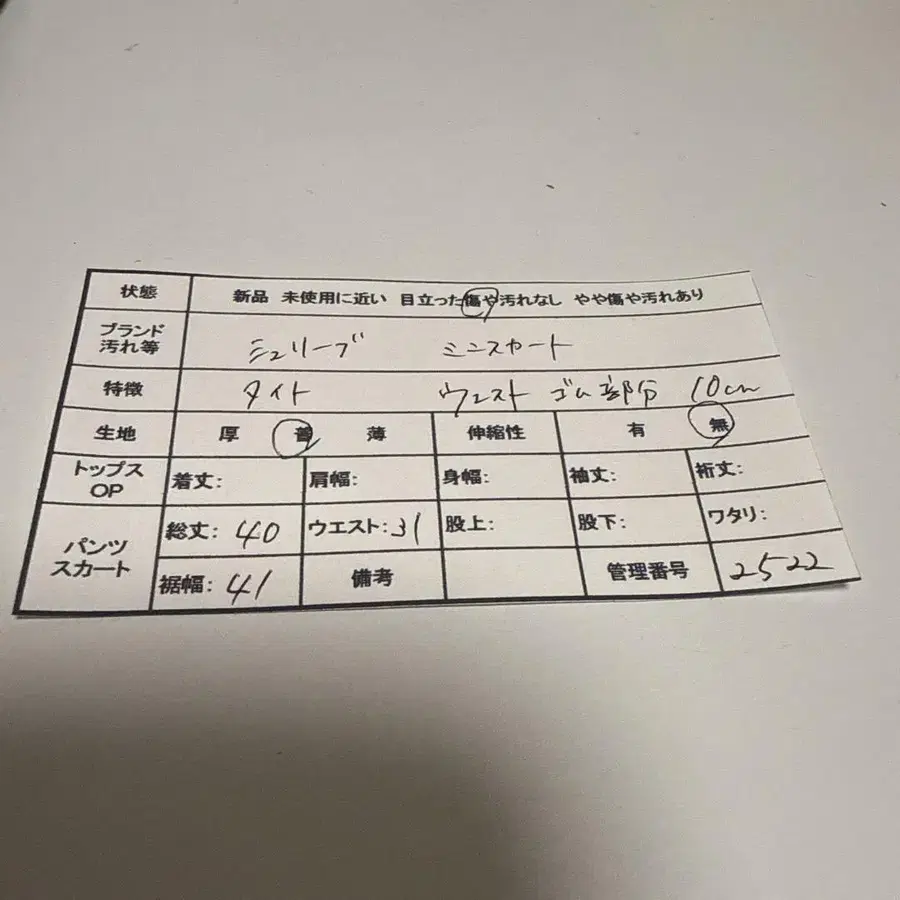 状態 新品 未使用に近い 目立った傷や汚れなし やや傷や汚れあり
ブランド
汚れ等 ミュリーブ ミニスカート
特徴 タイト ウェスト ゴム部分 10cm
生地 厚 普 薄 伸縮性 有 無
トップス
OP 着丈: 肩幅: 身幅: 袖丈: 裄丈:
パンツ
スカート 総丈: 40 ウエスト: 31 股上: 股下: ワタリ:
裾幅: 41 備考 管理番号 2522